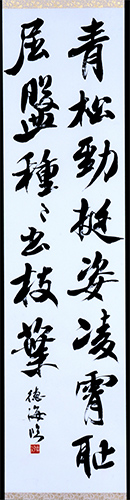 青松勁挺姿凌霄耻
屈盤種〻出枝葉
徳海臨